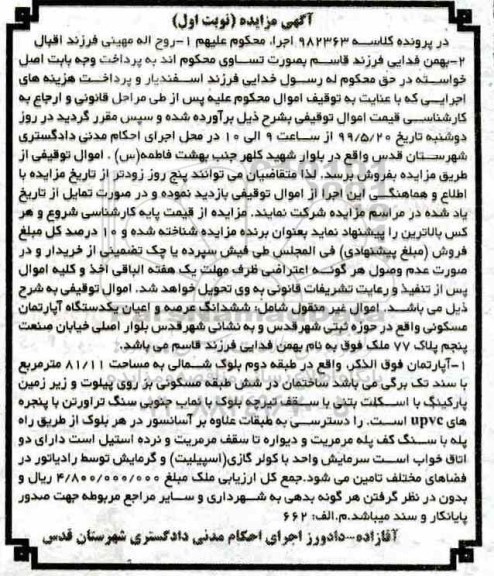 آگهی مزایده (نوبت اول)
در پرونده کلاسه ۹۸۲۳۶۳ اجرا، محکوم علیهم ۱-روح اله مهینی فرزند اقبال
۲-بهمن فدایی فرزند قاسم بصورت تساوی محکوم اند به پرداخت وجه بابت اصل
خواسته در حق محکوم له رسول خدایی فرزند اسفندیار و پرداخت هزینه های
اجرایی که با عنایت به توقیف اموال محکوم علیه پس از طی مراحل قانونی و ارجاع به
کارشناسی قیمت اموال توقیفی بشرح ذیل برآورده شده و سپس مقرر گردید در روز
دوشنبه تاریخ ۹۹/۵/۲۰ از ساعت ۹ الی ۱۰ در محل اجرای احکام مدنی دادگستری
شهرستان قدس واقع در بلوار شهید کلهر جنب بهشت فاطمه(س) . اموال توقیفی از
طریق مزایده بفروش برسد. لذا متقاضیان می توانند پنج روز زودتر از تاریخ مزایده با
اطلاع و هماهنگی این اجرا از اموال توقیفی بازدید نموده و در صورت تمایل از تاریخ
یاد شده در مراسم مزایده شرکت نمایند. مزایده از قیمت پایه کارشناسی شروع و هر
کس بالاترین را پیشنهاد نماید بعنوان برنده مزایده شناخته شده و ۱۰ درصد کل مبلغ
فروش (مبلغ پیشنهادی) فی المجلس طی فیش سپرده یا چک تضمینی از خریدار و در
صورت عدم وصول هر گونه اعتراضی ظرف مهلت یک هفته الباقی اخذ و کلیه اموال
پس از تنفیذ و رعایت تشریفات قانونی به وی تحویل خواهد شد. اموال توقیفی به شرح
ذیل می باشد. اموال غیر منقول شامل: ششدانگ عرصه و اعیان یکدستگاه آپارتمان
مسکونی واقع در حوزه ثبتی شهرقدس و به نشانی شهرقدس بلوار اصلی خیابان صنعت
پنجم پلاک ۷۷ ملک فوق به نام بهمن فدایی فرزند قاسم می باشد.
۱-آپارتمان فوق الذکر واقع در طبقه دوم بلوک شمالی به مساحت ۸۱/۱۱ مترمربع
با سند تک برگی می باشد ساختمان در شش طبقه مسکونی بر روی پیلوت و زیر زمین
پارکینگ با اسکلت بتنی با سقف تیرچه بلوک با نماب جنوبی سنگ تراورتن با پنجره
های upvc است. را دسترسی به طبقات علاوه بر آسانسور در هر بلوک از طریق راه
پله با سنگ کف پله مرمریت و دیواره تا سقف مرمریت و نرده استیل است دارای دو
اتاق خواب است سرمایش واحد با کولر گازی(اسپیلیت) و گرمایش توسط رادیاتور در
فضاهای مختلف تامین می شود.جمع کل ارزیابی ملک مبلغ ۴/۸۰۰/۰۰۰/۰۰۰ ریال و
بدون در نظر گرفتن هر گونه بدهی به شهرداری و سایر مراجع مربوطه جهت صدور
پایانکار و سند میباشد.م.الف: ۶۶۲
آقازاده--دادورز اجرای احکام مدنی دادگستری شهرستان قدس